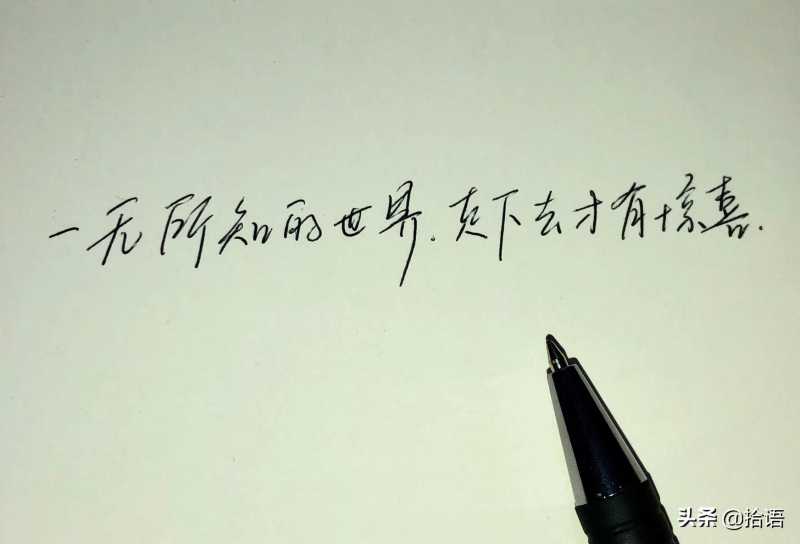 一无所知的世界.走下去才有惊喜.
头条 @拾语